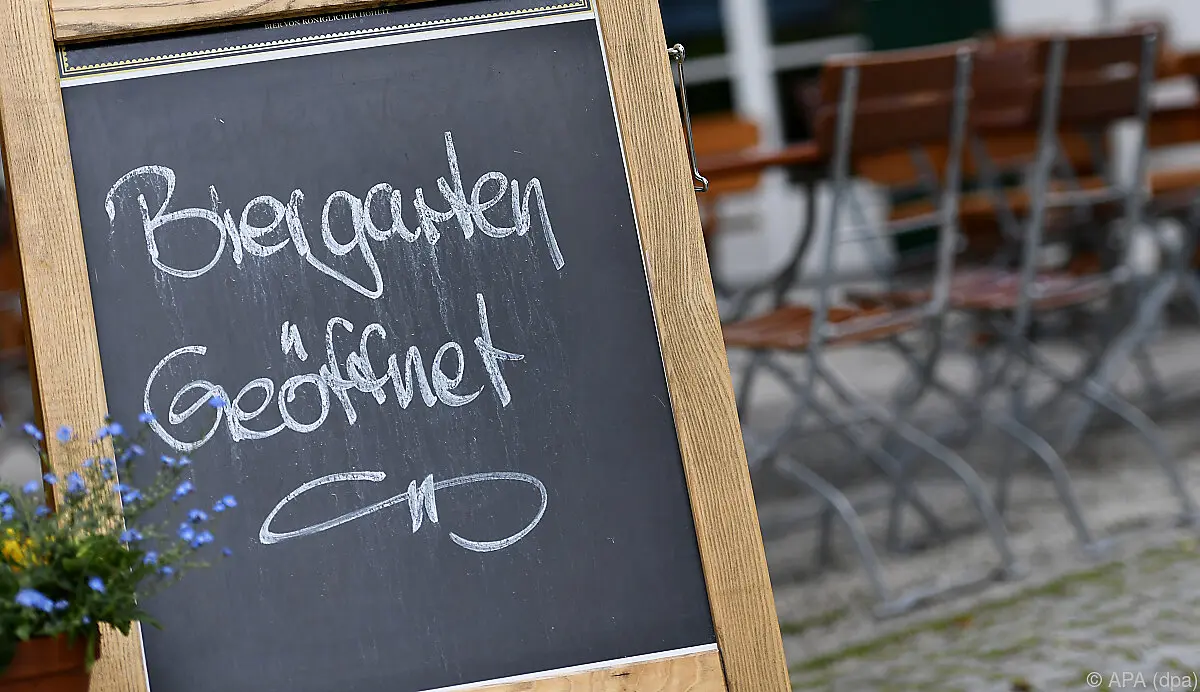 BIER VON KÖNIGLICHER HOHEIT
Biergarten
Geöffnet
© APA (dpa)